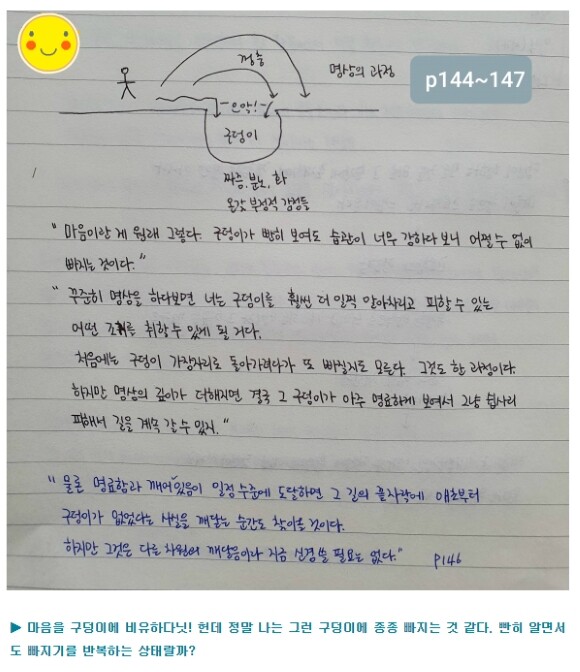 껑충
명상의 과정
p144~147
-으악!-
구덩이
짜증, 분노, 화
온갖 부정적 감정들
" 마음이란 게 원래 그렇다. 구덩이가 빤히 보여도 습관이 너무 강하다 보니 어쩔 수 없이
빠지는 것이다."
" 꾸준히 명상을 하다보면 너는 구덩이를 훨씬 더 일찍 알아차리고 피할 수 있는
어떤 조치를 취할 수 있게 될 거다.
처음에는 구덩이 가장자리로 돌아가려다가 또 빠질지도 모른다. 그것도 한 과정이다.
하지만 명상의 깊이가 더해지면 결국 그 구덩이가 아주 명료하게 보여서 그냥 쉽사리
피해서 길을 계속 갈 수 있지."
" 물론 명료함과 깨어있음이 일정 수준에 도달하면 그 길의 끝자락에 애초부터
구덩이가 없었다는 사실을 깨닫는 순간도 찾아올 것이다.
하지만 그것은 다른 차원의 깨달음이니 지금 신경 쓸 필요는 없다." p146
▶ 마음을 구덩이에 비유하다닛! 헌데 정말 나는 그런 구덩이에 종종 빠지는 것 같다. 빤히 알면서
도 빠지기를 반복하는 상태랄까?